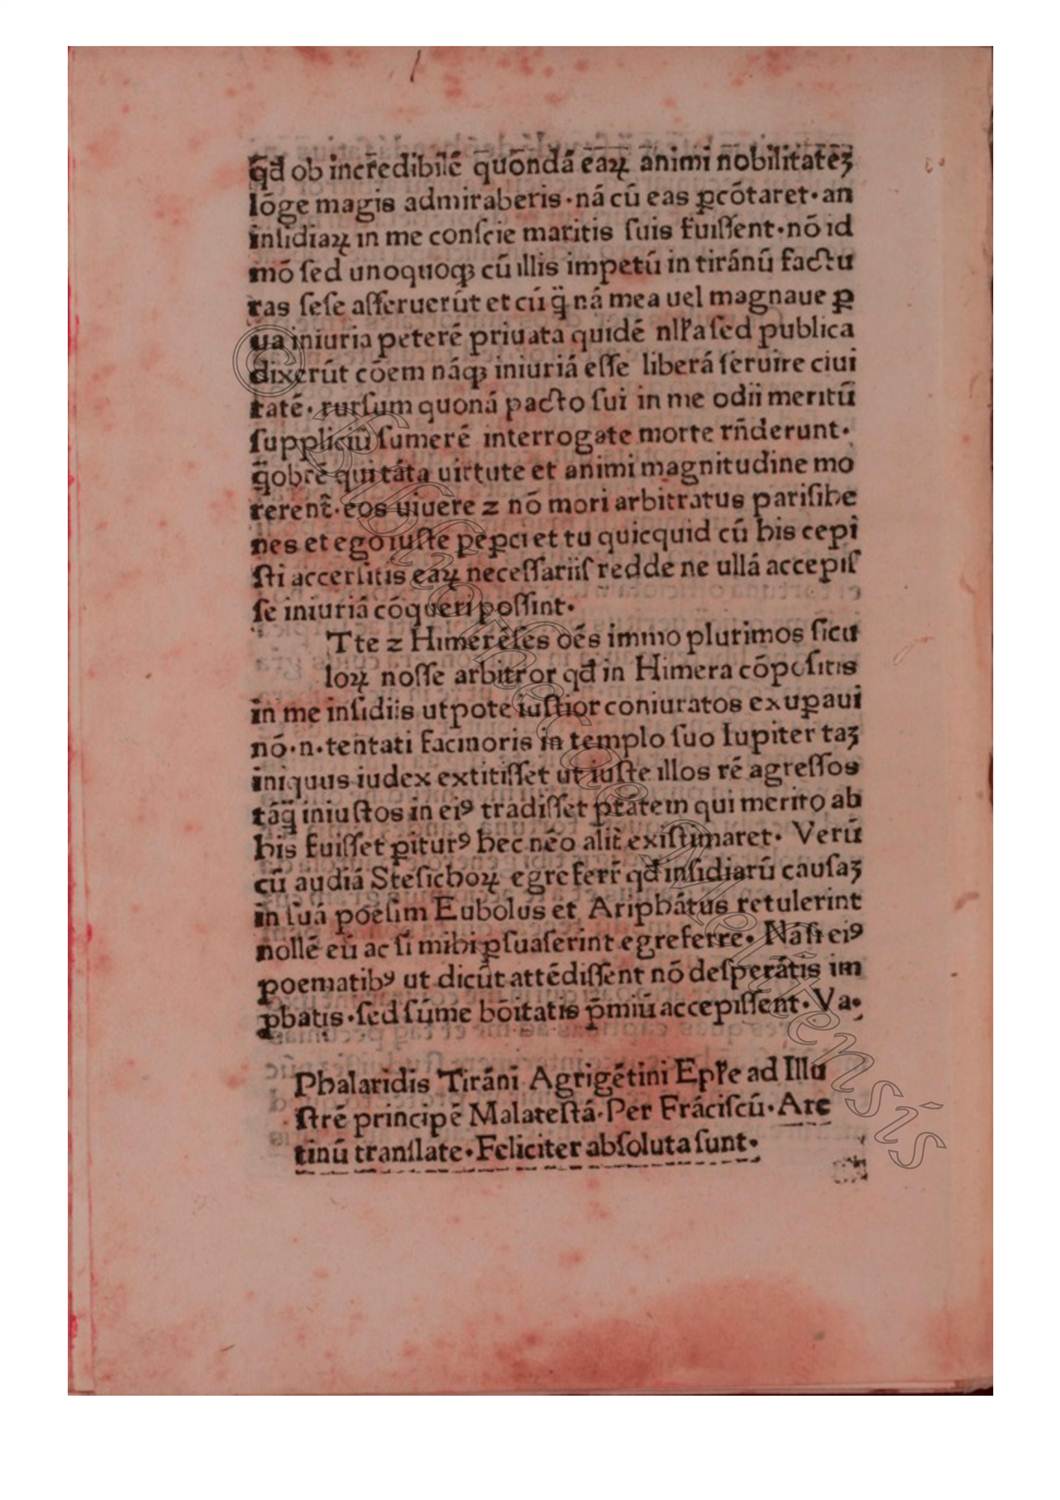 qđ ob incredibilē quōndā eaꝝ animi nobilitatēꝫ
lōge magis admiraberis·nā cū eas ꝑcōtaret·an
insidiaꝝ in me conscie maritis ſuis fuiſſent·nō id
mō ſed unoquoqꝫ cū illis impetū in tirānū factu
ras ſeſe aſſeruerūt et cū q̄ nā mea uel magnaue ꝑ
ua iniuria peterē priuata quidē nlꝉa ſed publica
dixerūt cōem nāqꝫ iniuriā eſſe liberā ſeruire ciui
tatē· rurſum quonā pacto ſui in me odii meritū
ſuppliciū ſumerē interrogate morte rn̄derunt·
q̄obrē qui tāta uirtute et animi magnitudine mo
rerent̄·eos uiuere ⁊ nō mori arbitratus pariſibe
nes et ego iuſte peꝑci et tu quicquid cū his cepi
ſti accerſitis eaꝝ neceſſariiſ redde ne ullā accepiſ
ſe iniuriā cōqueri poſſint·
Tte ⁊ Himerēſes oēs immo plurimos ſicu
loꝝ noſſe arbitror qđ in Himera cōpoſitis
in me inſidiis utpote iuſtior coniuratos exuꝑaui
nō·n·tentati facinoris in templo ſuo Iupiter taꝫ
iniquus iudex extitiſſet ut iuſte illos rē agreſſos
tāq̄ iniuſtos in eiꝰ tradiſſet ptātem qui merito ab
his fuiſſet ꝑiturꝰ hec nēo alit̄ exiſtimaret· Verū
cū audiā Steſichoꝝ egreferr̄ qđ inſidiarū cauſaꝫ
in ſuā poeſim Eubolus et Ariphātus retulerint
nollē eū ac ſi mihi ꝑſuaſerint egreferre· Nā ſi eiꝰ
poematibꝰ ut dicūt attēdiſſent nō deſperātis im
ꝓbatis·ſed ſūme bōitatis p̄miū accepiſſent·Va·
Phalaridis Tirāni Agrigētini Epꝉe ad Illu
ſtrē principē Malateſtā·Per Frāciſcū·Are
tinū tranſlate·Feliciter abſoluta ſunt·
© Bibliotheca Melitensis